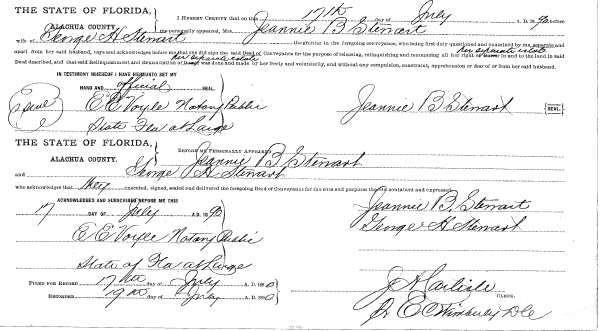 THE STATE OF FLORIDA,
ALACHUA COUNTY.
I HEREBY CERTIFY that on this 17th day of July A. D. 1890 before
me personally appeared, Mrs. Jeannie B Stewart
wife of George H Stewart the grantor in the foregoing conveyance, who being first duly questioned and examined by me separate and
apart from her said husband, says and acknowledges before me that she did sign the said Deed of Conveyance for the purpose of releasing, relinquishing and renouncing all her right of dower in and to the land in said her separate estate
Deed described, and that said Relinquishment and Renunciation of dower was done and made by her freely and voluntarily, and without any compulsion, constraint, apprehension or fear of or from her said husband. her separate estate
IN TESTIMONY WHEREOF I HAVE HEREUNTO SET MY
HAND AND official SEAL.
Seal
E E Voyle Notary Public
State Fla at Large
Jeannie B Stewart SEAL
THE STATE OF FLORIDA,
ALACHUA COUNTY.
BEFORE ME PERSONALLY APPEARED
Jeannie B Stewart
and George H Stewart
who acknowledges that they executed, signed, sealed and delivered the foregoing Deed of Conveyance for the uses and purposes therein contained and expressed.
ACKNOWLEDGED AND SUBSCRIBED BEFORE ME THIS
17 DAY OF July A. D. 1890
E E Voyle Notary Public
State of Fla at Large
Jeannie B. Stewart
George H Stewart
FILED FOR RECORD 17th day of July A. D. 1890
RECORDED 19th day of July A. D. 1890
J A Carlisle
CLERK.
Pr E C Wimberly D C